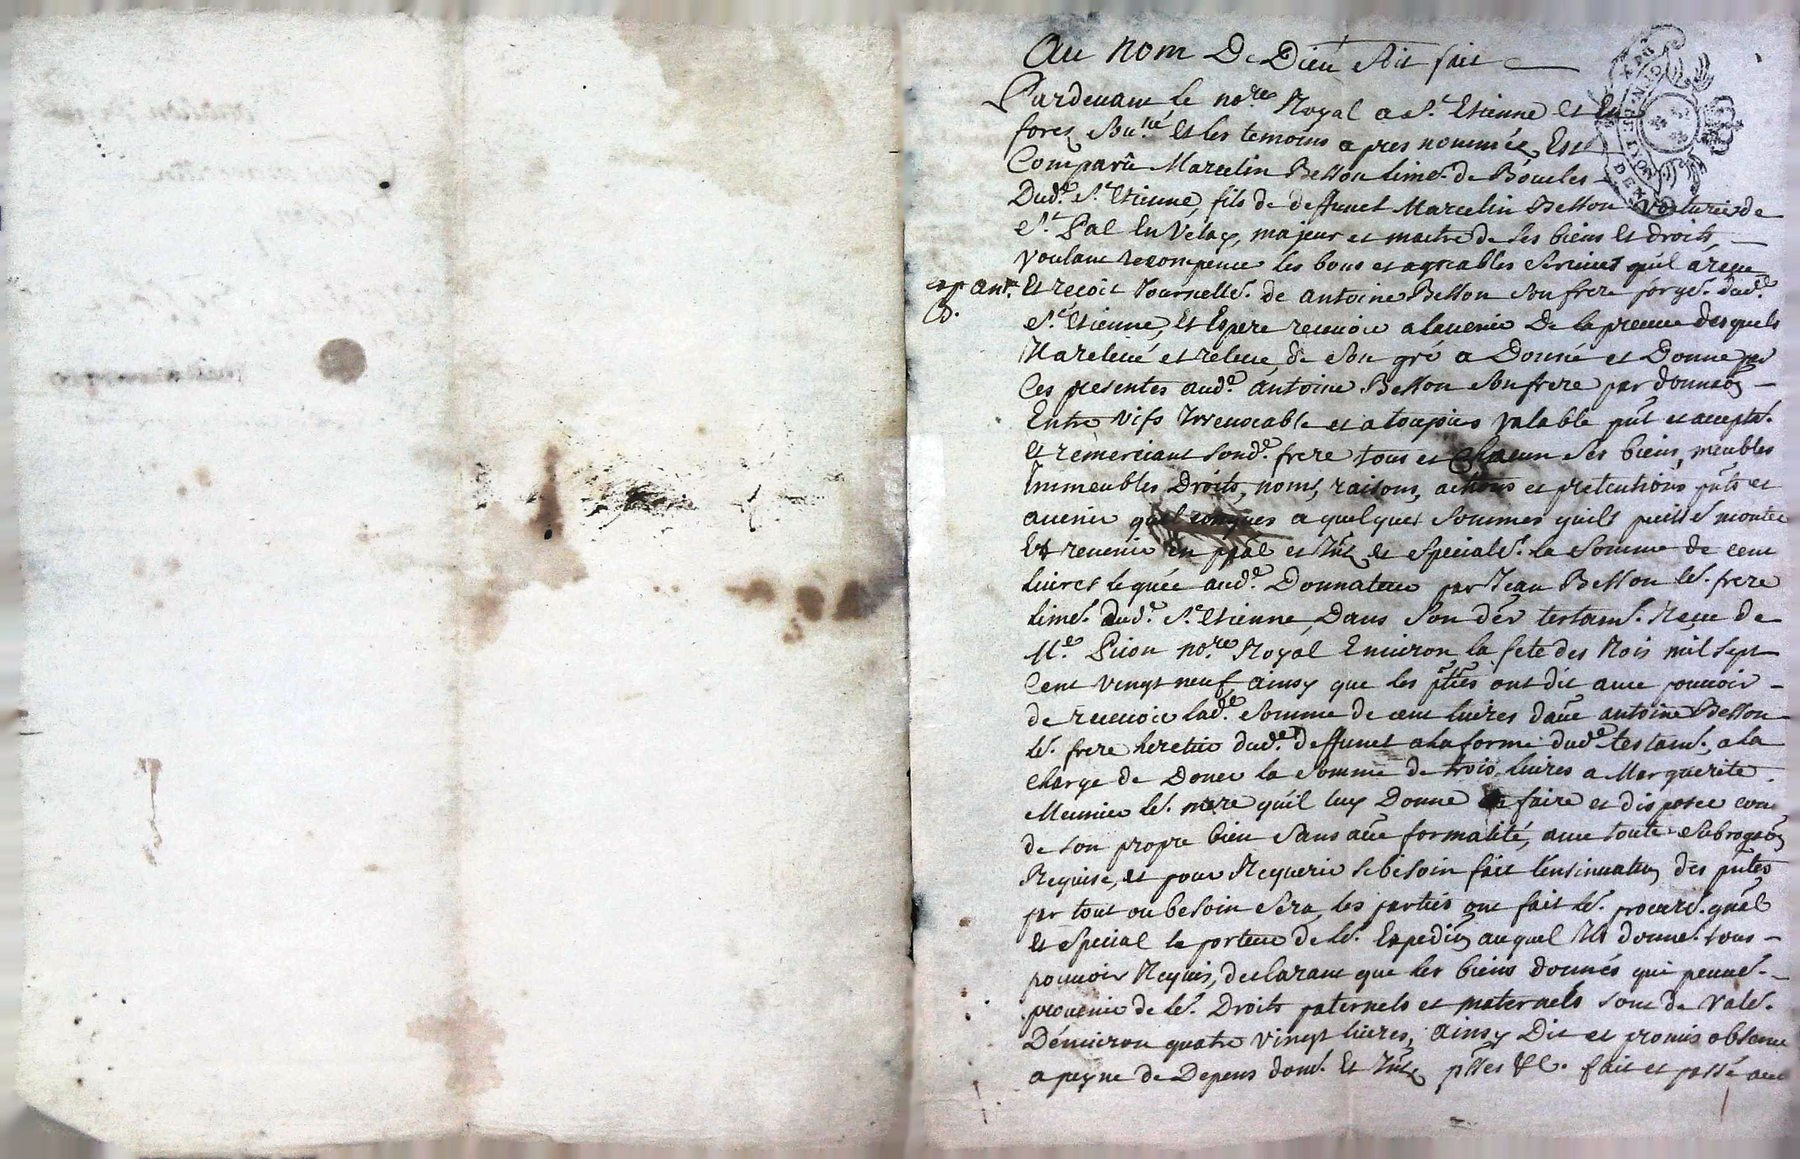 Au nom De Dieu Soit fait
Pardevant le no.re Royal a S.t Etienne et En
forez Sou.né Et les temoins apres nommés, Est
Comparû Marcelin Besson lime.r de Boucles
Dud.t S.t Etienne, fils de deffunct Marcelin Besson voiturier de
S.t Pal En Velay, majeur et maitre de ses biens Et droits,
voulant recompence les bons et agreables Services qu'il a receu
Et reçoit Journelle.t de antoine Besson Son frere forge.r dud.t
S.t Etienne, Et Espere recevoir a lavenir De la preuve desquels
Ma relevé et releve, de Son gré a Donné et Donne par
Ces presentes aud.t antoine Besson Son frere par donnaôn
Entre vifs Irrevocable et a toujours valable pñt et accept.t
Et remerciant Sond.t frere tous et Chacun Ses biens, meubles
Immeubles Droits, noms, raisons, actions et pretentions pñts et
avenir quelconques a quelques Sommes quils puisse monter
Et revenir En ppâl et Int. et Speciale.t la Somme de cent
livres leguée aud.t Donnateur par Jean Besson le.r frere
lime.r dud.t S.t Etienne, Dans Son der testam.t Receu de
M.e Pion no.re Royal Environ la fete des Rois mil Sept
Cent vingt neuf, ainsy que les pties ont dit avec pouvoir
de recevoir lad.e Somme de cent livres dud. antoine Besson
le.r frere heretier dud.t deffunct a la forme dud.t testam.t, a la
charge de Doner la Somme de trois livres a Marguerite
Meunier le.r mere qu'il luy Donne de faire et disposer come
de son propre bien Sans aûe formalité, avec toute Subrogaôn
Requise, et pour Requerir Se besoin fait l'insinuation des pñtes
par tout ou besoin Sera, les parties ont fait le.r procure.r gñal
Et Special le porteur de le.r Expedion auquel Ils donne.t tous
pouvoir Requis, declarant que les biens donnés qui peuve.t
provenir de le.r Droits paternels et maternels Sont de vale.r
Denviron quatre vingt livres, ainsy Dit et promis observer
a peyne de Depens dom.s Et Int. psses &c. fait et passé aud